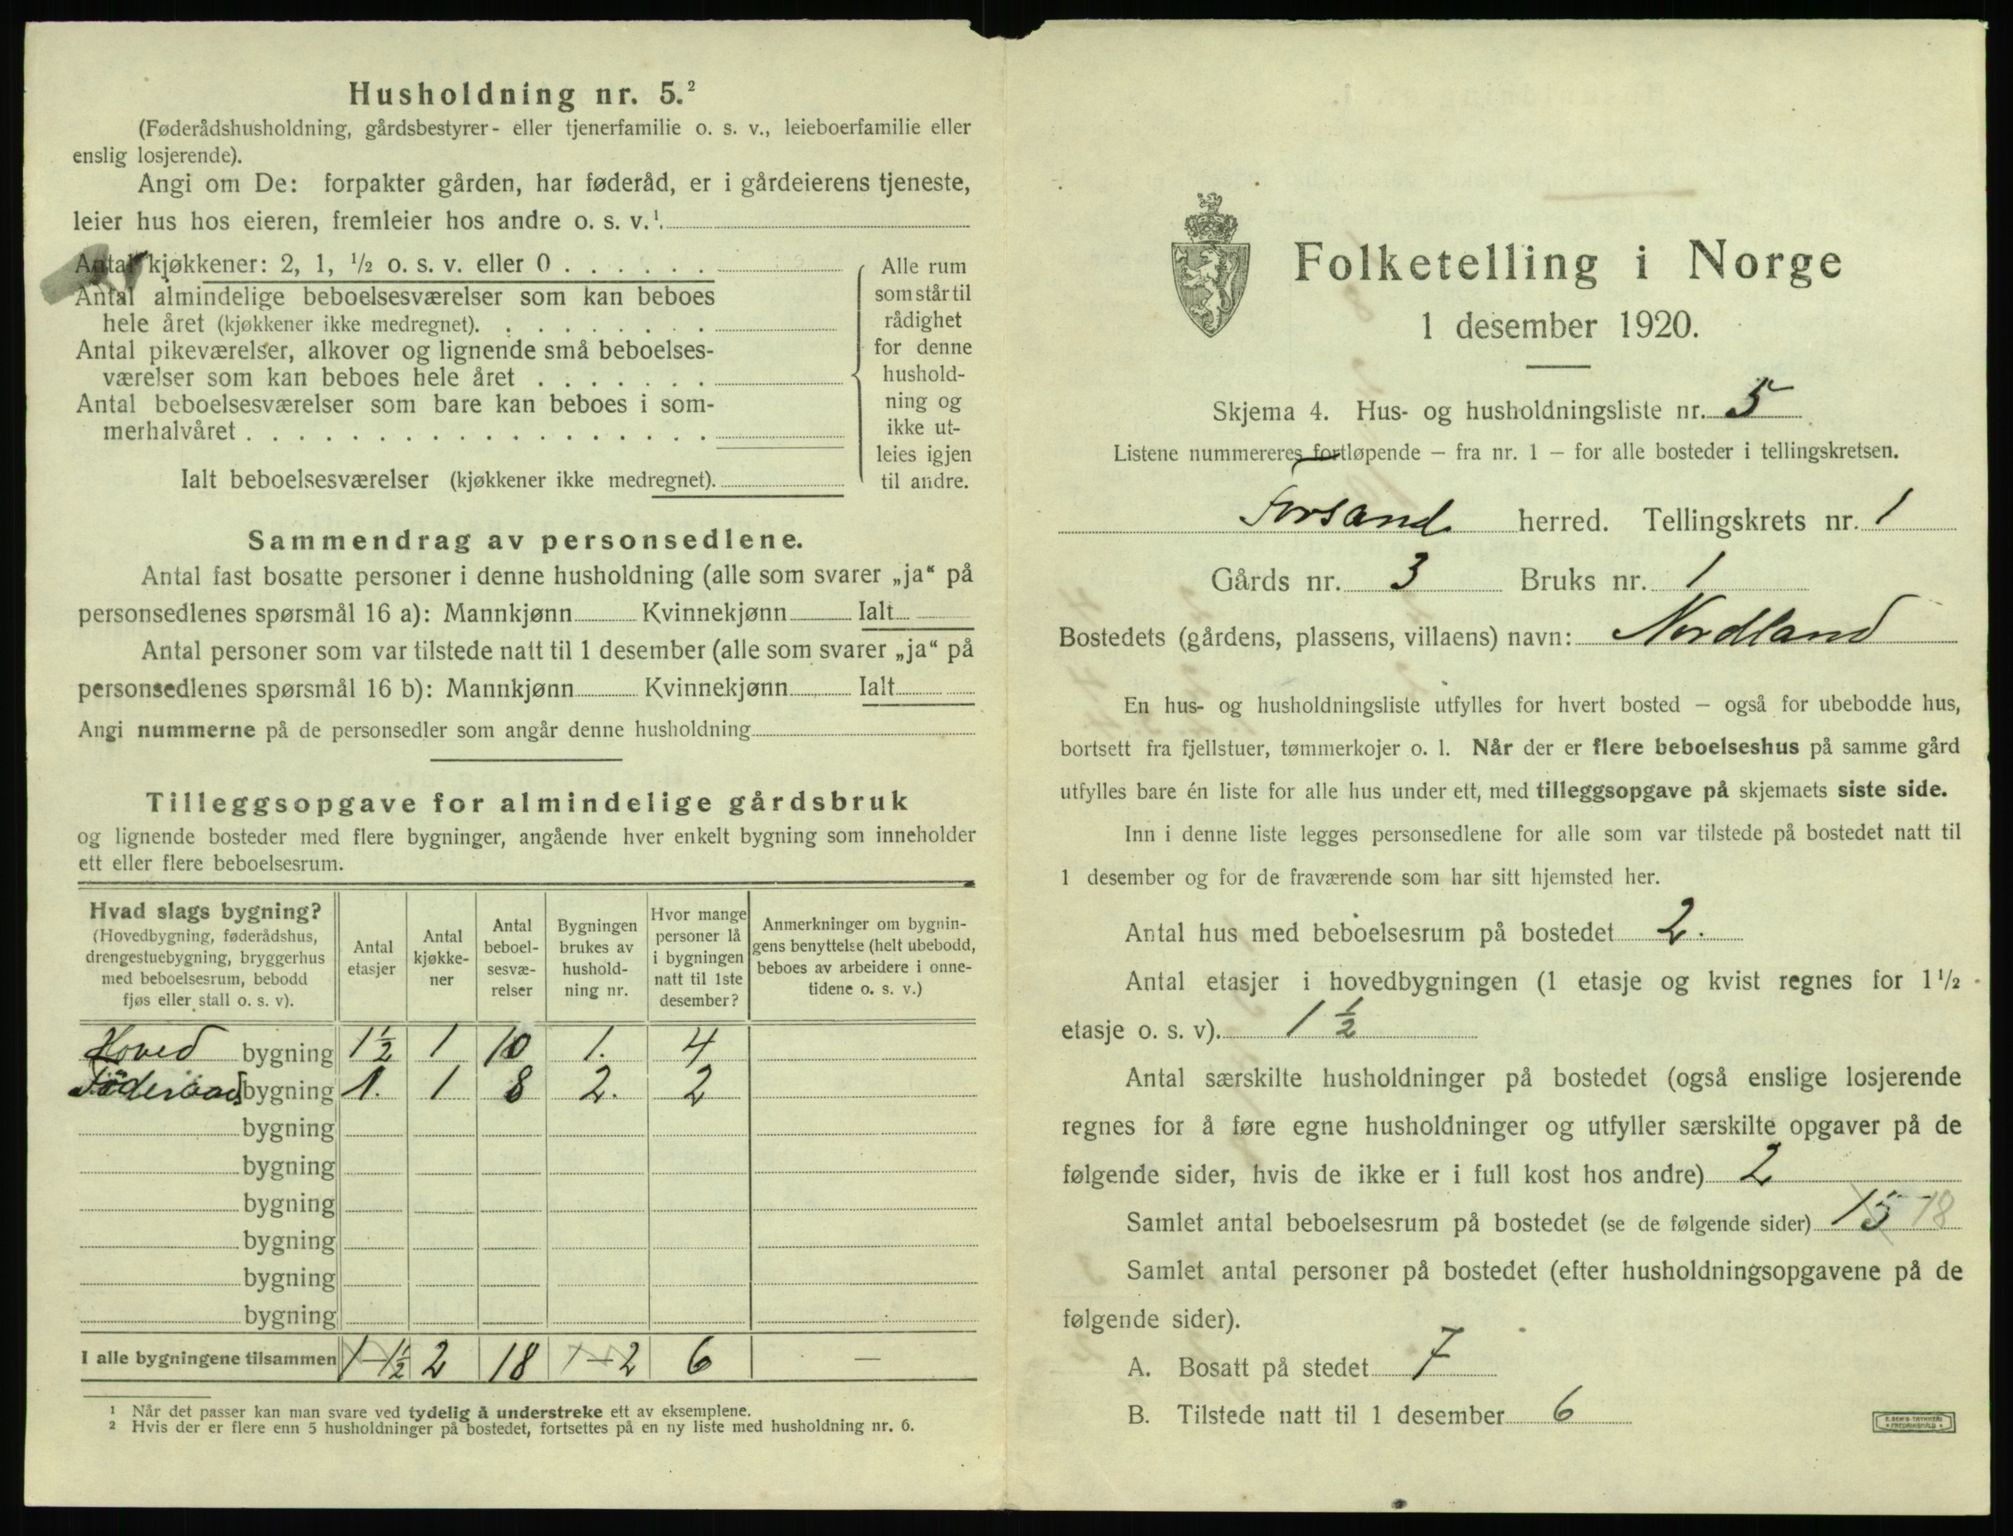 Husholdning nr. 5.²
(Føderådshusholdning, gårdsbestyrer- eller tjenerfamilie o. s. v., leieboerfamilie eller
enslig losjerende).
Angi om De: forpakter gården, har føderåd, er i gårdeierens tjeneste,
leier hus hos eieren, fremleier hos andre o. s. v.¹
Antal kjøkkener: 2, 1, ½ o. s. v. eller 0
Antal almindelige beboelsesværelser som kan beboes
hele året (kjøkkener ikke medregnet).
Antal pikeværelser, alkover og lignende små beboelses-
værelser som kan beboes hele året
Antal beboelsesværelser som bare kan beboes i som-
merhalvåret
Ialt beboelsesværelser (kjøkkener ikke medregnet).
Alle rum
som står til
rådighet
for denne
hushold-
ning og
ikke ut-
leies igjen
til andre.
Sammendrag av personsedlene.
Antal fast bosatte personer i denne husholdning (alle som svarer „ja“ på
personsedlenes spørsmål 16 a): Mannkjønn Kvinnekjønn Ialt
Antal personer som var tilstede natt til 1 desember (alle som svarer „ja“ på
personsedlenes spørsmål 16 b): Mannkjønn Kvinnekjønn Ialt
Angi nummerne på de personsedler som angår denne husholdning
Tilleggsopgave for almindelige gårdsbruk
og lignende bosteder med flere bygninger, angående hver enkelt bygning som inneholder
ett eller flere beboelsesrum.
Hvad slags bygning?
(Hovedbygning, føderådshus,
drengestuebygning, bryggerhus
med beboelsesrum, bebodd
fjøs eller stall o. s. v).
Antal
etasjer
Antal
kjøkke-
ner
Antal
beboel-
sesvæ-
relser
Bygningen
brukes av
hushold-
ning nr.
Hvor mange
personer lå
i bygningen
natt til 1ste
desember?
Anmerkninger om bygnin-
gens benyttelse (helt ubebodd,
beboes av arbeidere i onne-
tidene o. s. v.)
Hoved bygning 1½ 1 10 1. 4
Föderaads bygning 1. 1 8 2. 2
bygning
bygning
bygning
bygning
bygning
bygning
I alle bygningene tilsammen 1-1½ 2 18 1-2 6 —
¹ Når det passer kan man svare ved tydelig å understreke ett av eksemplene.
² Hvis der er flere enn 5 husholdninger på bostedet, fortsettes på en ny liste med husholdning nr. 6.
Folketelling i Norge
1 desember 1920.
Skjema 4. Hus- og husholdningsliste nr. 5
Listene nummereres fortløpende – fra nr. 1 – for alle bosteder i tellingskretsen.
Forsand herred. Tellingskrets nr. 1
Gårds nr. 3 Bruks nr. 1
Bostedets (gårdens, plassens, villaens) navn: Nordland
En hus- og husholdningsliste utfylles for hvert bosted – også for ubebodde hus,
bortsett fra fjellstuer, tømmerkojer o. l. Når der er flere beboelseshus på samme gård
utfylles bare én liste for alle hus under ett, med tilleggsopgave på skjemaets siste side.
Inn i denne liste legges personsedlene for alle som var tilstede på bostedet natt til
1 desember og for de fraværende som har sitt hjemsted her.
Antal hus med beboelsesrum på bostedet 2.
Antal etasjer i hovedbygningen (1 etasje og kvist regnes for 1½
etasje o. s. v). 1½
Antal særskilte husholdninger på bostedet (også enslige losjerende
regnes for å føre egne husholdninger og utfyller særskilte opgaver på de
følgende sider, hvis de ikke er i full kost hos andre) 2
Samlet antal beboelsesrum på bostedet (se de følgende sider) 15 18
Samlet antal personer på bostedet (efter husholdningsopgavene på de
følgende sider).
A. Bosatt på stedet 7
B. Tilstede natt til 1 desember 6